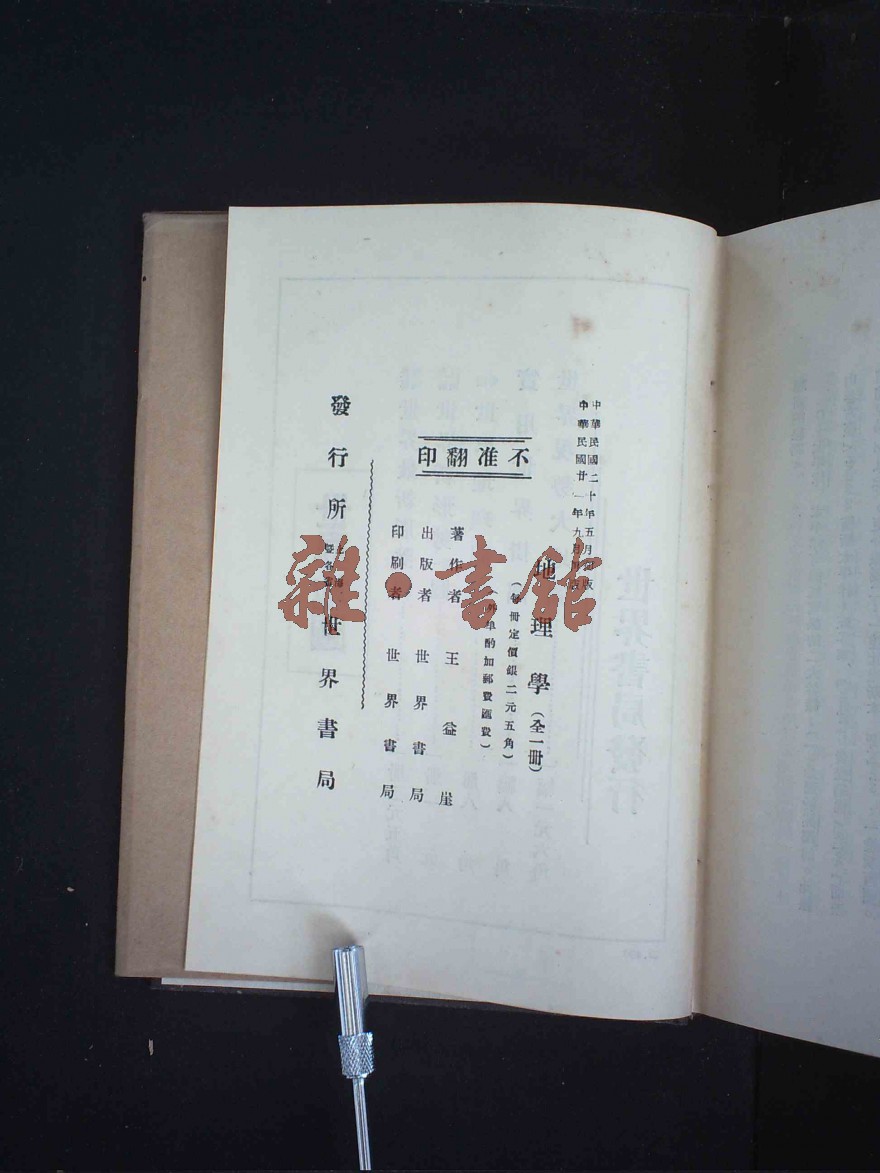 中華民國二十年五月初版
中華民國廿一年九月再版
地理學(全一冊)
(每冊定價銀二元五角)
(外埠酌加郵費匯費)
不准翻印
著作者 王益崖
出版者 世界書局
印刷者 世界書局
發行所 世界書局
雜·書館